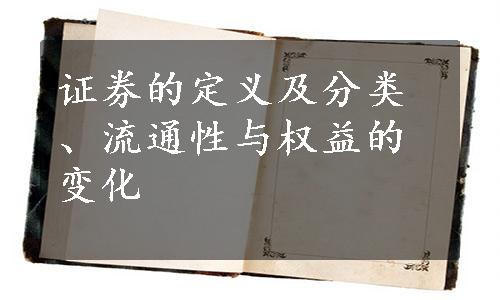 证券的定义及分类
、流通性与权益的
变化